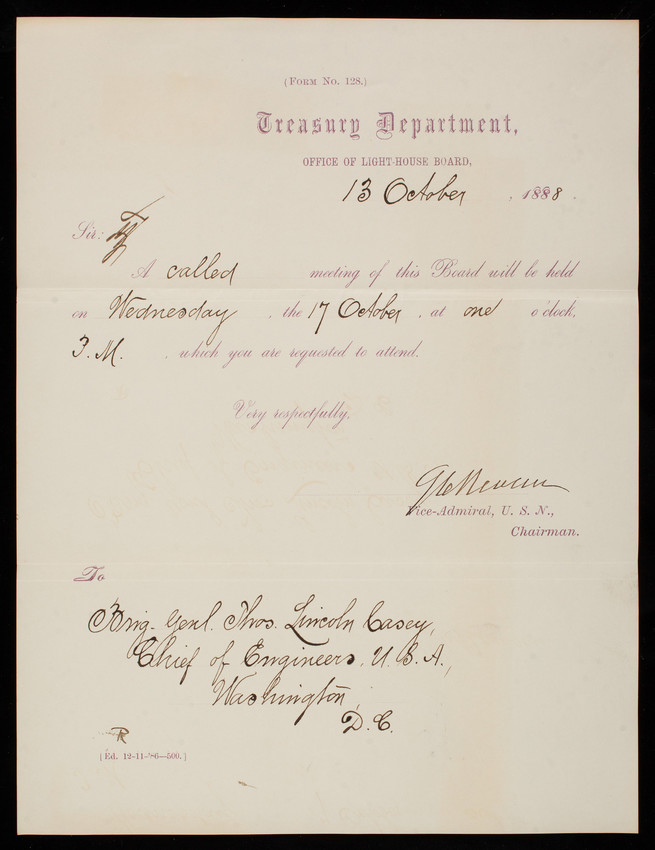 (Form No. 128.)
Treasury Department,
OFFICE OF LIGHT-HOUSE BOARD,
13 October, 1888.
Sir:
A called meeting of this Board will be held
on Wednesday, the 17 October, at one o'clock,
P. M., which you are requested to attend.
Very respectfully,
Vice-Admiral, U. S. N.,
Chairman.
To
Brig. Genl. Thos. Lincoln Casey,
Chief of Engineers, U. S. A.,
Washington,
D. C.
R
[Ed. 12-11-'86—500.]